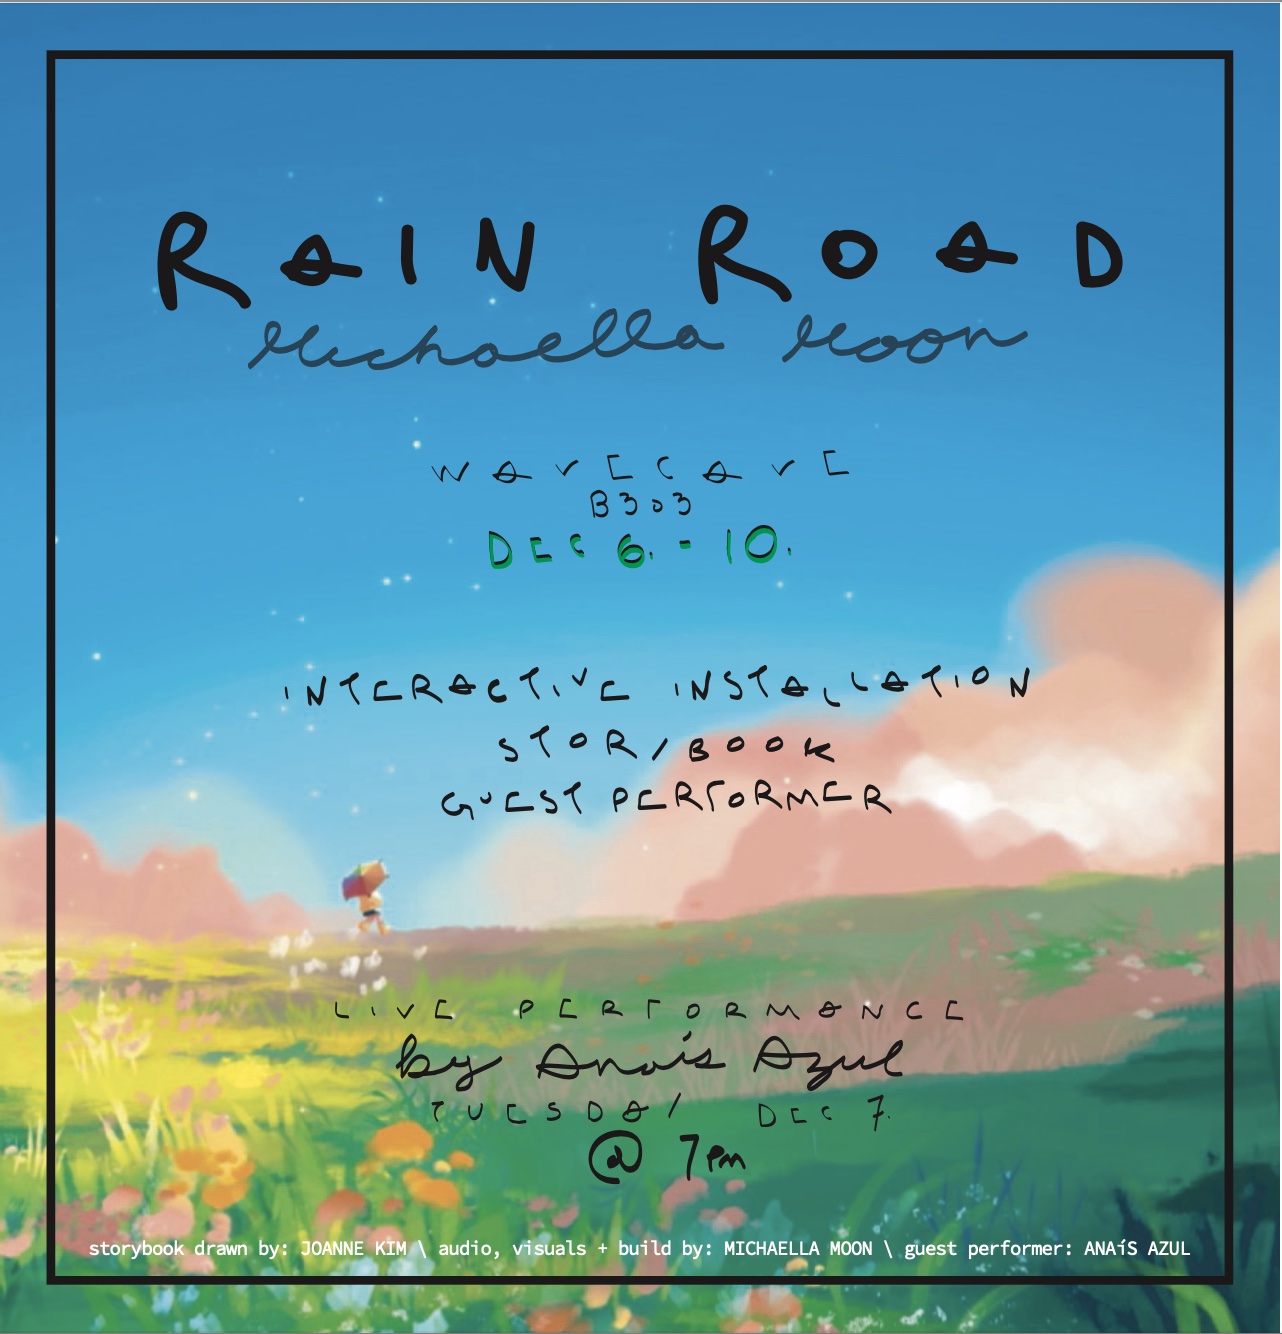 RAIN ROAD
Michaella Moon
WAVECAVE
B303
DEC 6. - 10.
INTERACTIVE INSTALLATION
STORYBOOK
GUEST PERFORMER
LIVE PERFORMANCE
by Anaís Azul
TUESDAY DEC 7.
@ 7pm
storybook drawn by: JOANNE KIM \ audio, visuals + build by: MICHAELLA MOON \ guest performer: ANAíS AZUL